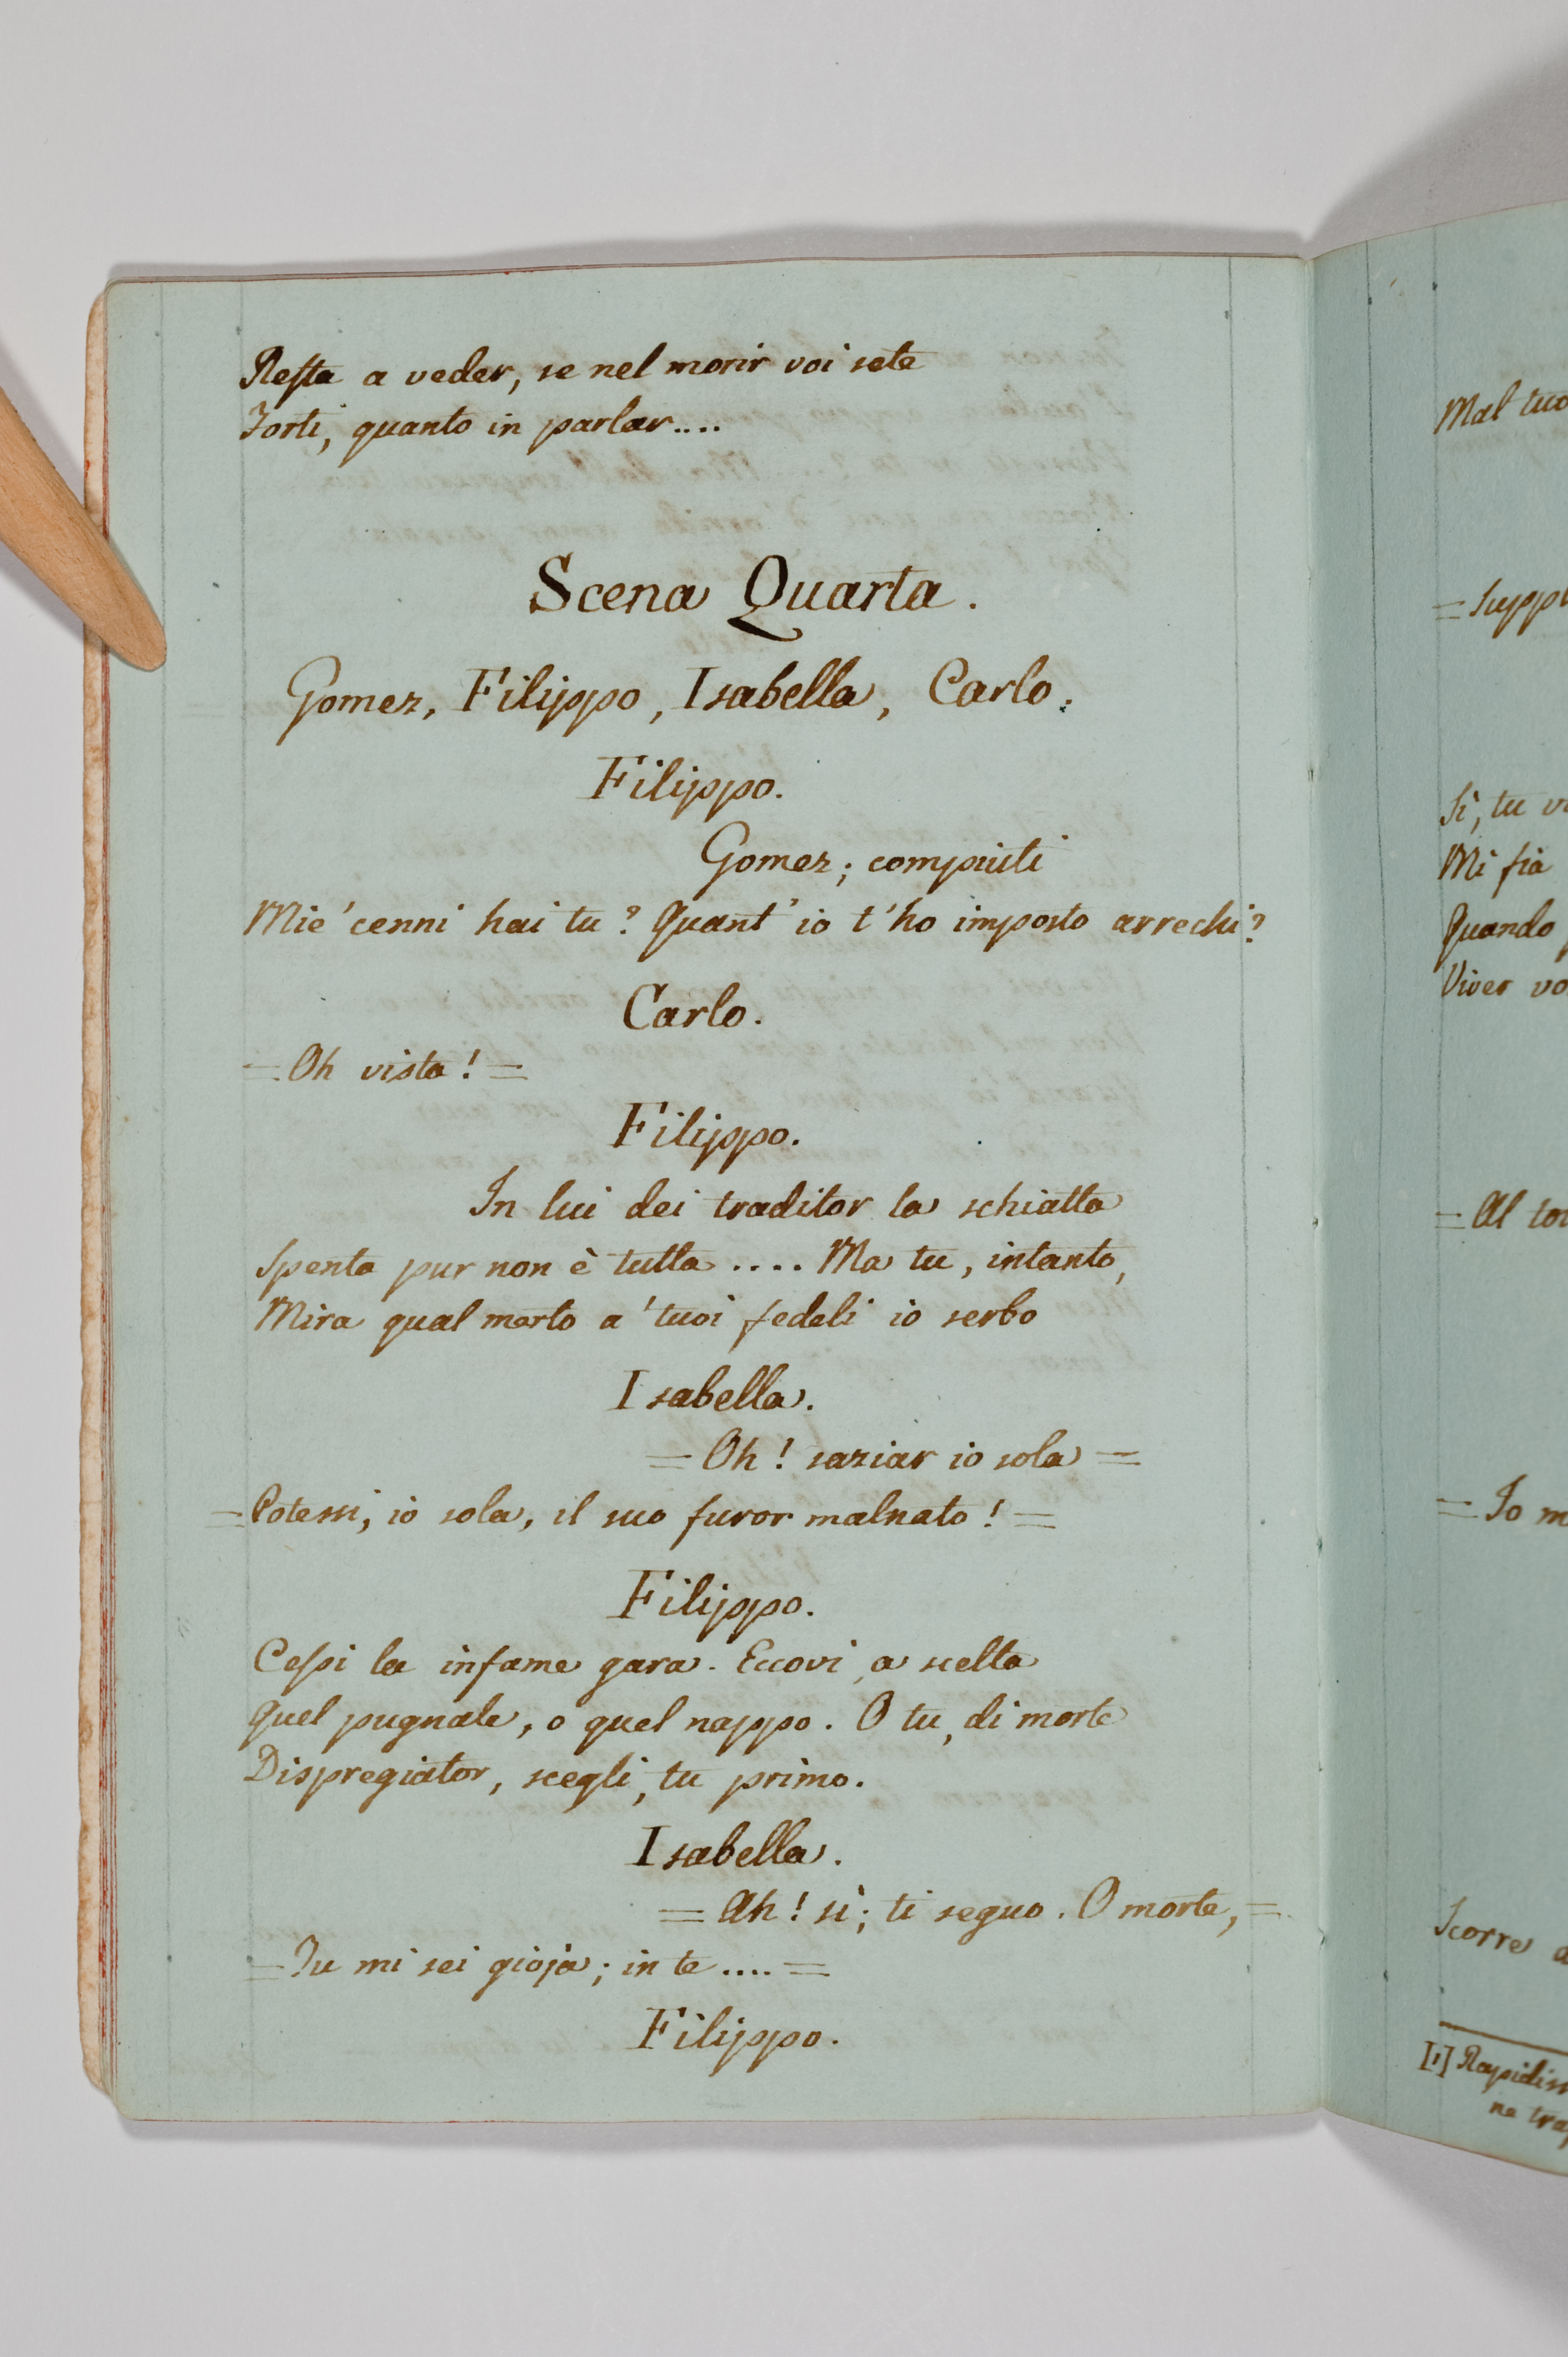 Resta a veder, se nel morir voi sete
Forti, quanto in parlar....
Scena Quarta.
Gomez, Filippo, Isabella, Carlo.
Filippo.
Gomez; compiuti
Mie' cenni hai tu? Quant' io t'ho imposto arrechi?
Carlo.
= Oh vista! =
Filippo.
In lui dei traditor la schiatta
Spenta pur non è tutta .... Ma tu, intanto,
Mira qual merto a' tuoi fedeli io serbo
Isabella.
= Oh! saziar io sola =
= Potessi, io sola, il suo furor malnato! =
Filippo.
Cessi la infame gara. Eccovi, a scelta
Quel pugnale, o quel nappo. O tu, di morte
Dispregiator, scegli, tu primo.
Isabella.
= Ah! sì; ti seguo. O morte, =
= Tu mi sei gioja; in te .... =
Filippo.
Mal tuo
= Suppl
Sì, tu v
Mi fia
Quando
Viver vo
= Al to
= Io m
Scorre
[1] Rapidiss
ne tra